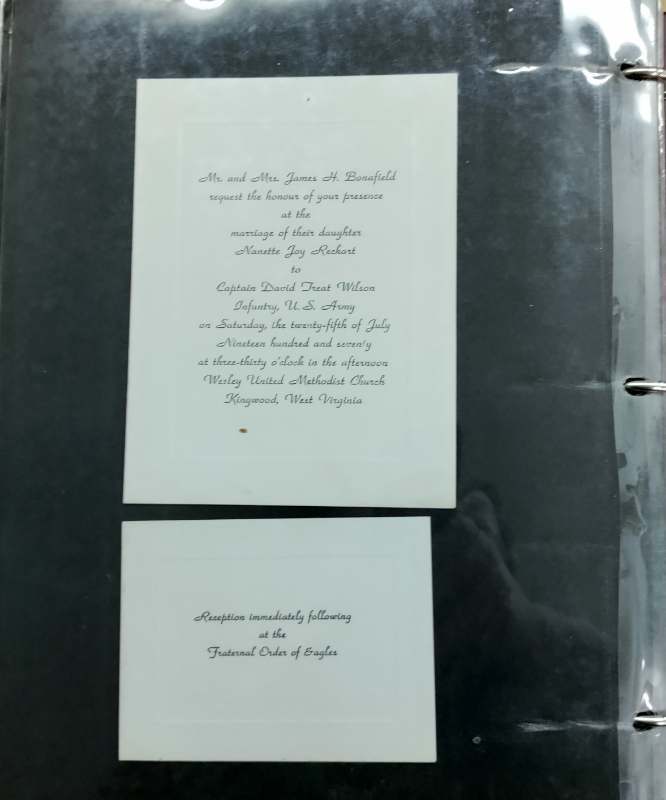 Mr. and Mrs. James H. Bonafield
request the honour of your presence
at the
marriage of their daughter
Nanette Joy Reckart
to
Captain David Treat Wilson
Infantry, U. S. Army
on Saturday, the twenty-fifth of July
Nineteen hundred and seventy
at three-thirty o'clock in the afternoon
Wesley United Methodist Church
Kingwood, West Virginia
Reception immediately following
at the
Fraternal Order of Eagles